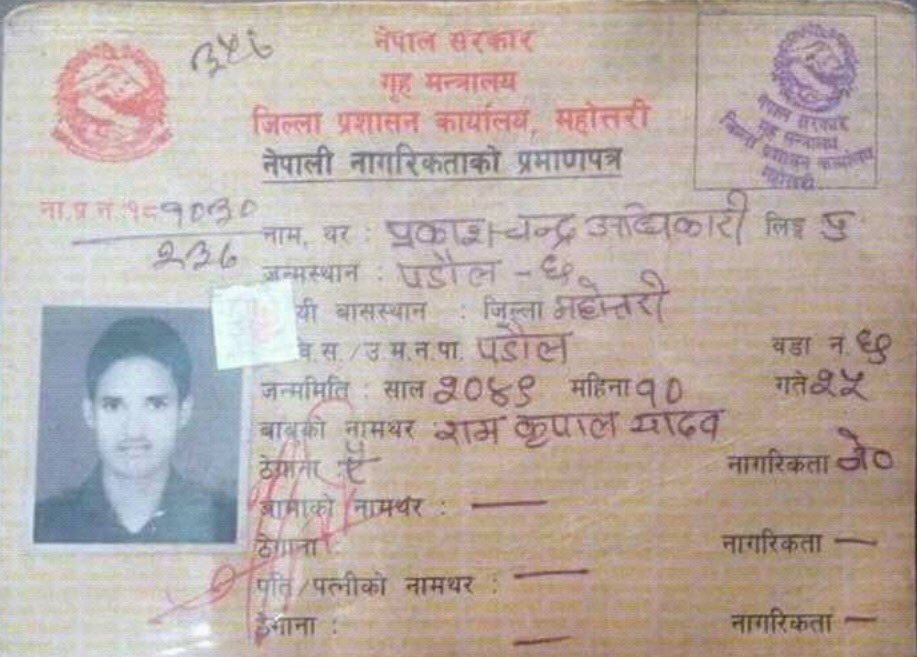 ३५६
नेपाल सरकार
गृह मन्त्रालय
जिल्ला प्रशासन कार्यालय, महोत्तरी
नेपाली नागरिकताको प्रमाणपत्र
नेपाल सरकार
गृह मन्त्रालय
जिल्ला प्रशासन कार्यालय
महोत्तरी
ना.प्र.नं.१८१०३०
२३६
नाम, थर : प्रकाश चन्द्र अधिकारी लिङ्ग पु
जन्मस्थान : पडौल - ६
यी बासस्थान : जिल्ला महोत्तरी
वि.स./उ.म.न.पा. पडौल वडा नं. ६
जन्ममिति : साल २०४९ महिना १० गते २५
बाबुको नामथर राम कृपाल यादव
ठेगाना : ऐ नागरिकता ने०
आमाको नामथर : —
ठेगाना : नागरिकता —
पति/पत्नीको नामथर : —
ठेगाना : — नागरिकता —